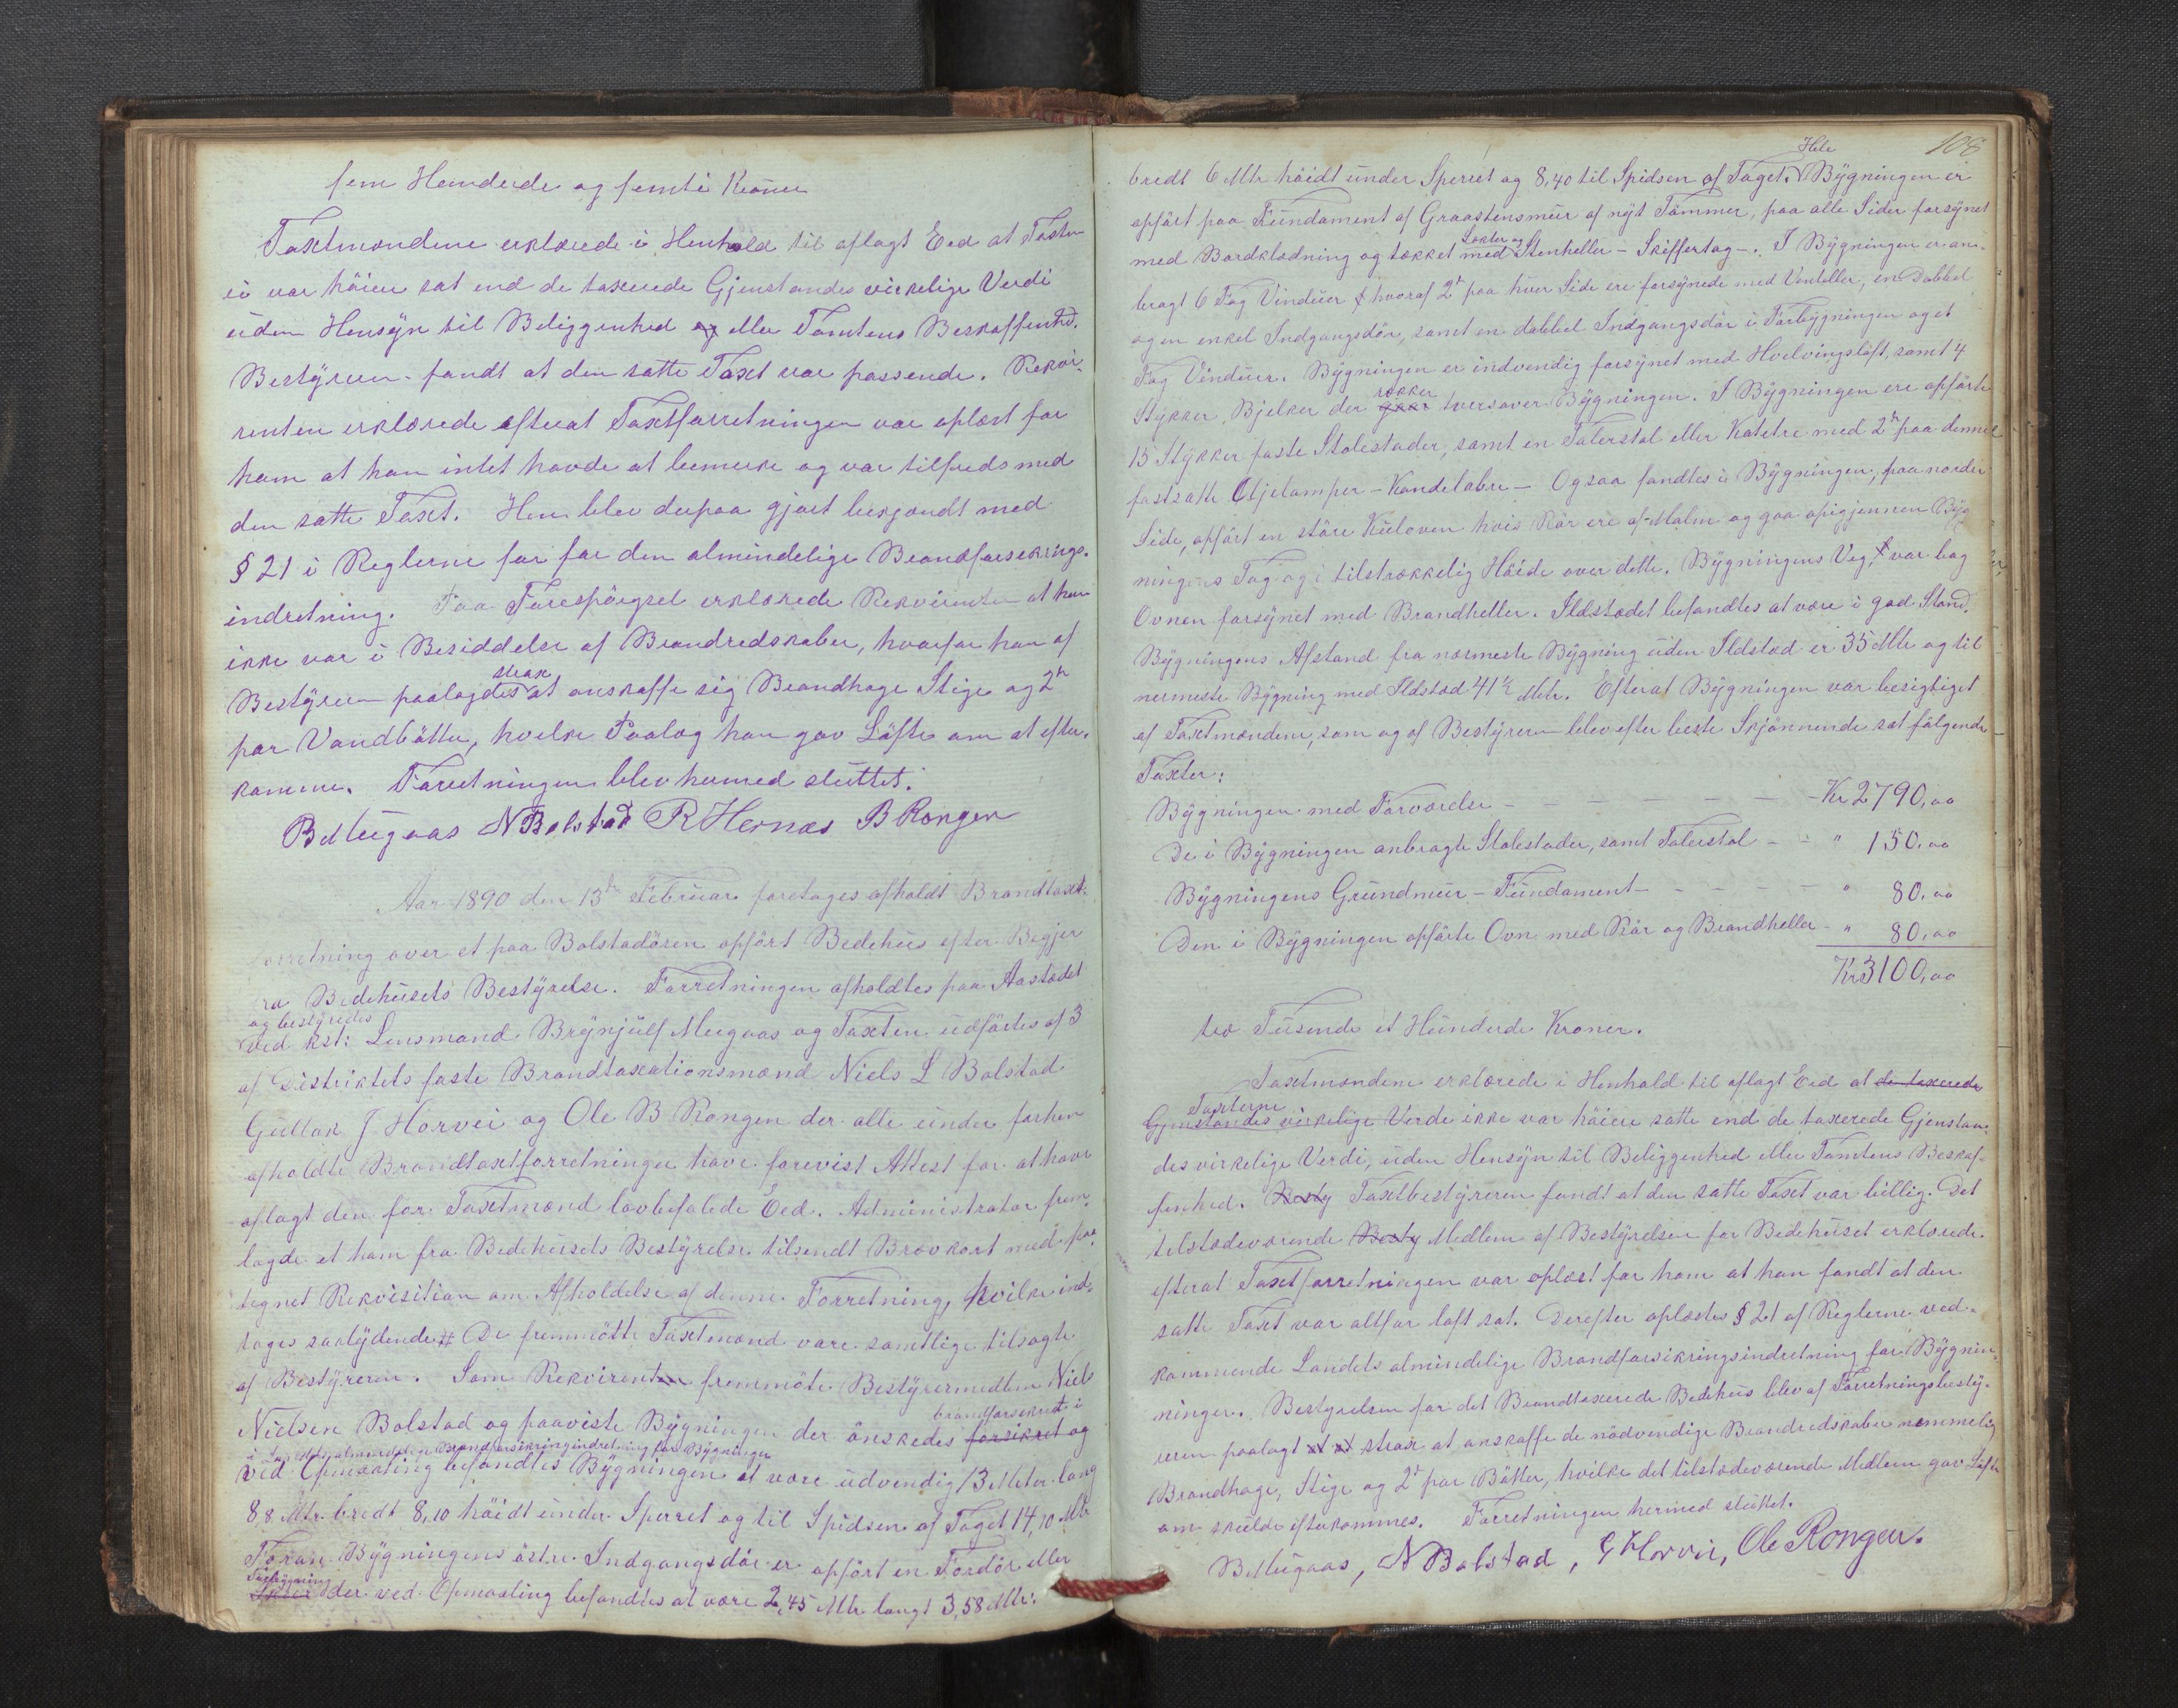 fem Hundrede og femti Kroner
Taxtmændene erklærede i Henhold til aflagt Eed at Taxten
ei var höiere sat end de taxerede Gjenstandes virkelige Verdi
uden Hensyn til Beliggenhed og eller Tomtens Beskaffenhd.
Bestyreren fandt at den satte Taxt var passende. Rekvi-
renten erklærede efterat Taxtforretningen var oplæst for
ham at han intet havde at bemerke og var tilfreds med
den satte Taxt. Ham blev derpaa gjort bekjendt med
§ 21 i Reglerne for for den almindelige Brandforsikrings-
indretning. Paa Forespörgsel erklærede Rekvirenten at han
ikke var i Besiddelse af Brandredskaber, hvorfor han af
Bestyreren paalagdes strax at anskaffe sig Brandhage Stige og 2de
par Vandbötter, hvilke Paalæg han gav Löfte om at efter-
komme. Forretningen blev hermed sluttet.
B Mugaas N Bolstad R Hernæs B Rongen
Aar 1890 den 13de Februar foretages afholdt Brandtaxt-
forretning over et paa Bolstadören opfört Bedehus efter Begjer
fra Bedehusets Bestyrelse. Forretningen afholdtes paa Aastædet
og bestyredes
ved kst: Lensmand Brynjulf Mugaas og Taxten udförtes af 3
af Distriktets faste Brandtaxationsmænd Niels L Bolstad
Gullak J Horvei og Ole B Rongen der alle under forhen
afholdte Brandtaxtforretninger have forevist Attest for at have
aflagt den for Taxtmænd lovbefalede Eed. Administrator frem-
lagde et ham fra Bedehusets Bestyrelse tilsendt Brevkort med paa-
tegnet Rekvisition om Afholdelse af denne Forretning, hvilke ind-
tages saalydende # De fremmötte Taxtmænd vare samtlige tilsagte
af Bestyreren. Som Rekvirenten fremmöte Bestyrermedlem Niels
Nielsen Bolstad og paaviste Bygningen der önskedes forsikret og brandforsikret i
i Landets almindelige Brandforsikringsindretning for Bygninger
Ved Opmaaling befandtes Bygningen at være udvendig 13 Meter lang
8,8 Mtr. bredt 8,10 höidt under Sperret og til Spidsen af Taget 14,10 Mtr
Foran Bygningens östre Indgangsdör er opfört en Fordör eller
Forbygning
Skur der ved Opmaaling befandtes at være 2,45 Mtr langt 3,58 Mtr:
108
bredt 6 Mtr höidt under Sperret og 8,40 til Spidsen af Taget. Hele Bygningen er
opfört paa Fundament af Graastensmur af nyt Tömmer, paa alle Sider forsynet
med Bordklædning og tækket med Lekter og Stenheller - Skiffertag -. I Bygningen er an-
bragt 6 Fag Vinduer hvoraf 2de paa hver Side ere forsynede med Ventiller, en Dobbel
og en enkel Indgangsdör, samt en dobbel Indgangsdör i Forbygningen og et
Fag Vinduer. Bygningen er indvendig forsynet med Hvelvingsloft, samt 4
Stykker Bjelker der rækker tversover Bygningen. I Bygningen ere opförte
15 Stykker faste Stolestader, samt en Talerstol eller Katetre med 2de paa denne
fastsatte Oljelamper - Kandelabre - Ogsaa fandtes i Bygningen, paa nordre
Side, opfört en större Kulovn hvis Rör ere af Malm og gaa opigjennem Byg
ningens Tag og i tilstrækkelig Höide over dette. Bygningens Veg, var bag
Ovnen forsynet med Brandheller. Ildstædet befandtes at være i god Stand.
Bygningens Afstand fra nærmeste Bygning uden Ildsted er 35 Mtr og til
nermeste Bygning med Ildsted 41½ Mtr. Efterat Bygningen var besigtiget
af Taxtmændene, som og af Bestyreren blev efter beste Skjönnende sat fölgende
Taxter:
Bygningen med Forværelse - - - - - - - Kr 2790,00
De i Bygningen anbragte Stolestader, samt Talerstol - - " 150.00
Bygningens Grundmur - Fundament - - - - - " 80,00
Den i Bygningen opförte Ovn med Rör og Brandheller - " 80,00
Kr 3100,00
tre Tusende et Hundrede Kroner.
Taxtmændene erklærede i Henhold til aflagt Eed at de taxerede
Taxterne
Gjenstandes virkelige Verde ikke var höiere satte end de taxerede Gjenstan-
des virkelige Verdi, uden Hensyn til Beliggenhed eller Tomtens Beskaf-
fenhed. Besty Taxtbestyreren fandt at den satte Taxt var billig. Det
tilstedeværende Besty Medlem af Bestyrelsen for Bedehuset erklærede
efterat Taxtforretningen var oplæst for ham at han fandt at den
satte Taxt var altfor loft sat. Derefter oplæstes § 21 af Reglerne ved-
kommende Landets almindelige Brandforsikringsindretning for Bygnin-
ninger. Bestyrelsen for det Brandtaxerede Bedehus blev af Forretningsbesty-
reren paalagt at at strax at anskaffe de nödvendige Brandredskaber nemmelig
Brandhage, Stige og 2de par Bötter, hvilke det tilstedeværende Medlem gav Löfte
om skulde efterkommes. Forretningen hermed sluttet.
B Mugaas, N Bolstad, G Horvei, Ole Rongen.